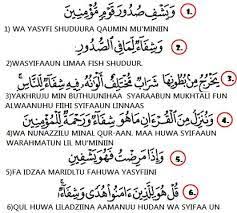 وَيَشْفِ صُدُورَ قَوْمٍ مُؤْمِنِينَ 1
1) WA YASYFI SHUDUURA QAUMIN MU'MINIIN
وَشِفَاءٌ لِمَا فِي الصُّدُورِ 2
2)WASYIFAAUN LIMAA FISH SHUDUUR
يَخْرُجُ مِنْ بُطُونِهَا شَرَابٌ مُخْتَلِفٌ أَلْوَانُهُ فِيهِ شِفَاءٌ لِلنَّاسِ 3
3)YAKHRUJU MIN BUTHUUNIHAA SYARAABUN MUKHTALI FUN
ALWAANUHU FIIHI SYIFAAUN LINNAAS
وَنُنَزِّلُ مِنَ الْقُرْآنِ مَا هُوَ شِفَاءٌ وَرَحْمَةٌ لِلْمُؤْمِنِينَ 4
4)WA NUNAZZILU MINAL QUR-AAN. MAA HUWA SYIFAAUN
WARAHMATUN LIL MU'MINIIN
وَإِذَا مَرِضْتُ فَهُوَ يَشْفِينِ 5
5)FA IDZAA MARIDLTU FAHUWA YASYFIINI
قُلْ هُوَ لِلَّذِينَ آمَنُوا هُدًى وَشِفَاءٌ 6
6)QUL HUWA LILADZIINA AAMANUU HUDAN WA SYIFAA UN